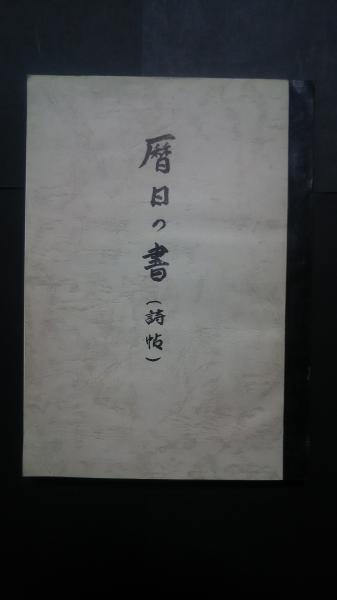 暦日の書(詩帖)